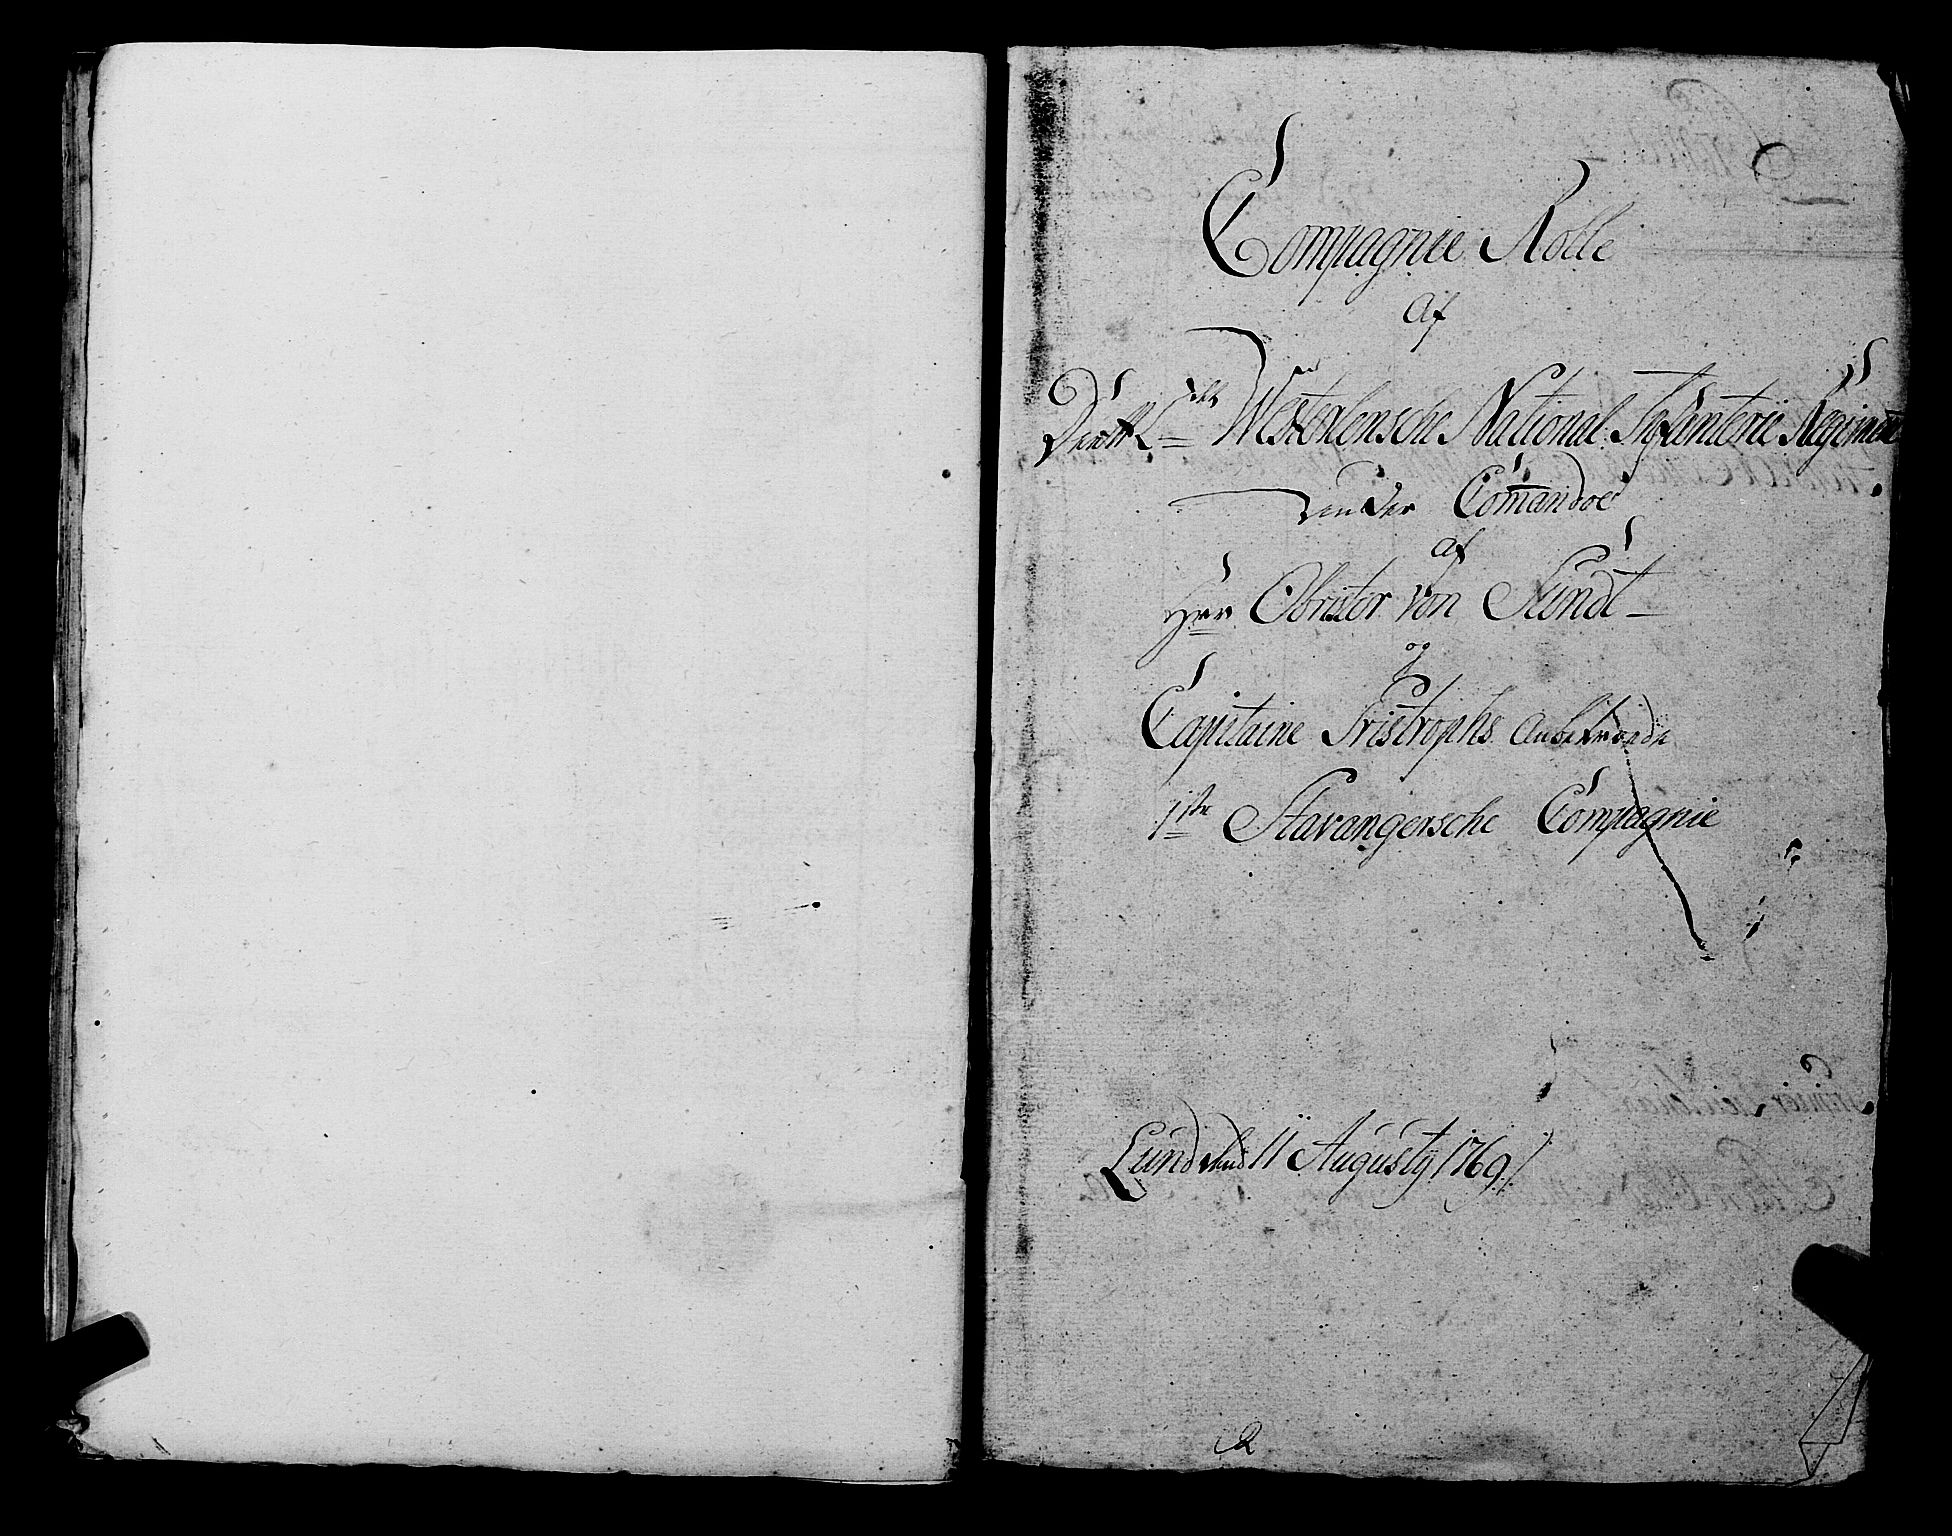 Compagnie Rolle
Af
Det 2det Westerlensche National Infanterie Regiment
under Com̄andoe
af
Herr Obrister von Sundt
og
Capitaine Tristrophs Anbetroede
1ste Stavangersche Compagnie
Lund den 11 Augusty 1769